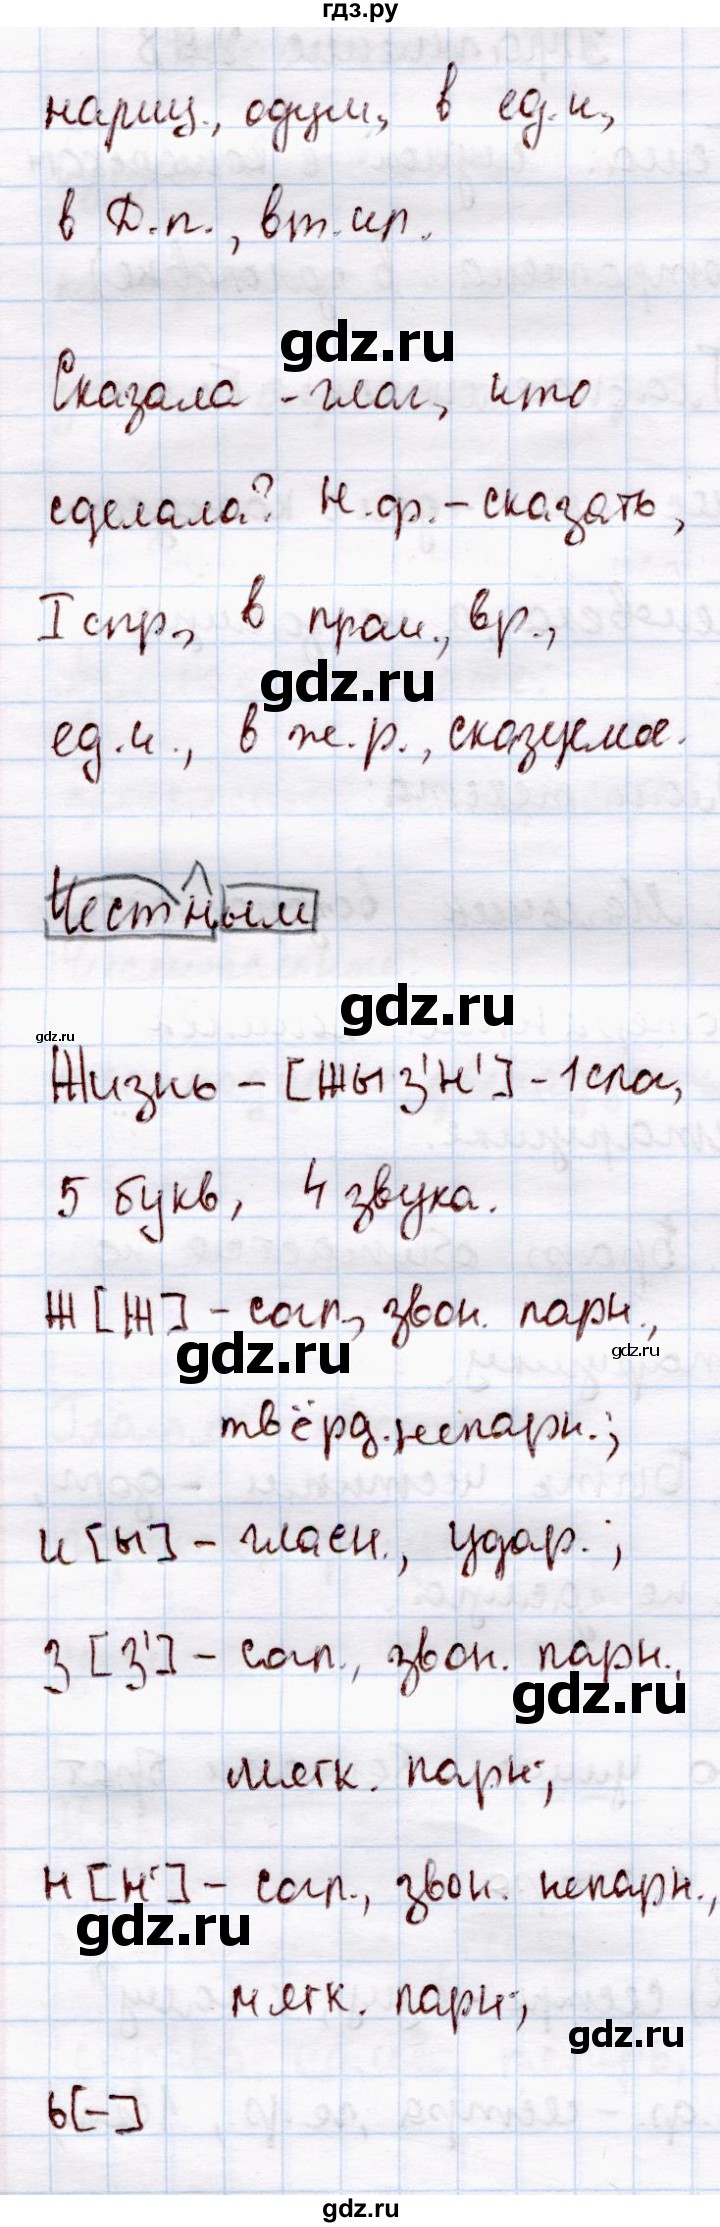 гдз.ру
нариц., одуш., в ед.ч.,
в Д.п., вт.ир.
gdz.ru
Сказала - глаг., что
сделала? Н.ф. - сказать,
I спр., в прош., вр.,
gdz.ru
ед.ч., в ж.р., сказуемое.
Честным
gdz.ru
gdz.ru
Жизнь - [жыз'н'] - 1 слог,
5 букв, 4 звука.
Ж [ж] - согл., звон. парн.,
gdz.ru
gdz.ru
твёрд. непарн.;
и [ы] - гласн., удар.;
з [з'] - согл., звон. парн.,
gdz.ru
мягк. парн.;
н [н'] - согл., звон. непарн.,
gdz.ru
мягк. парн.;
gdz.ru
ь [-]
gdz.ru